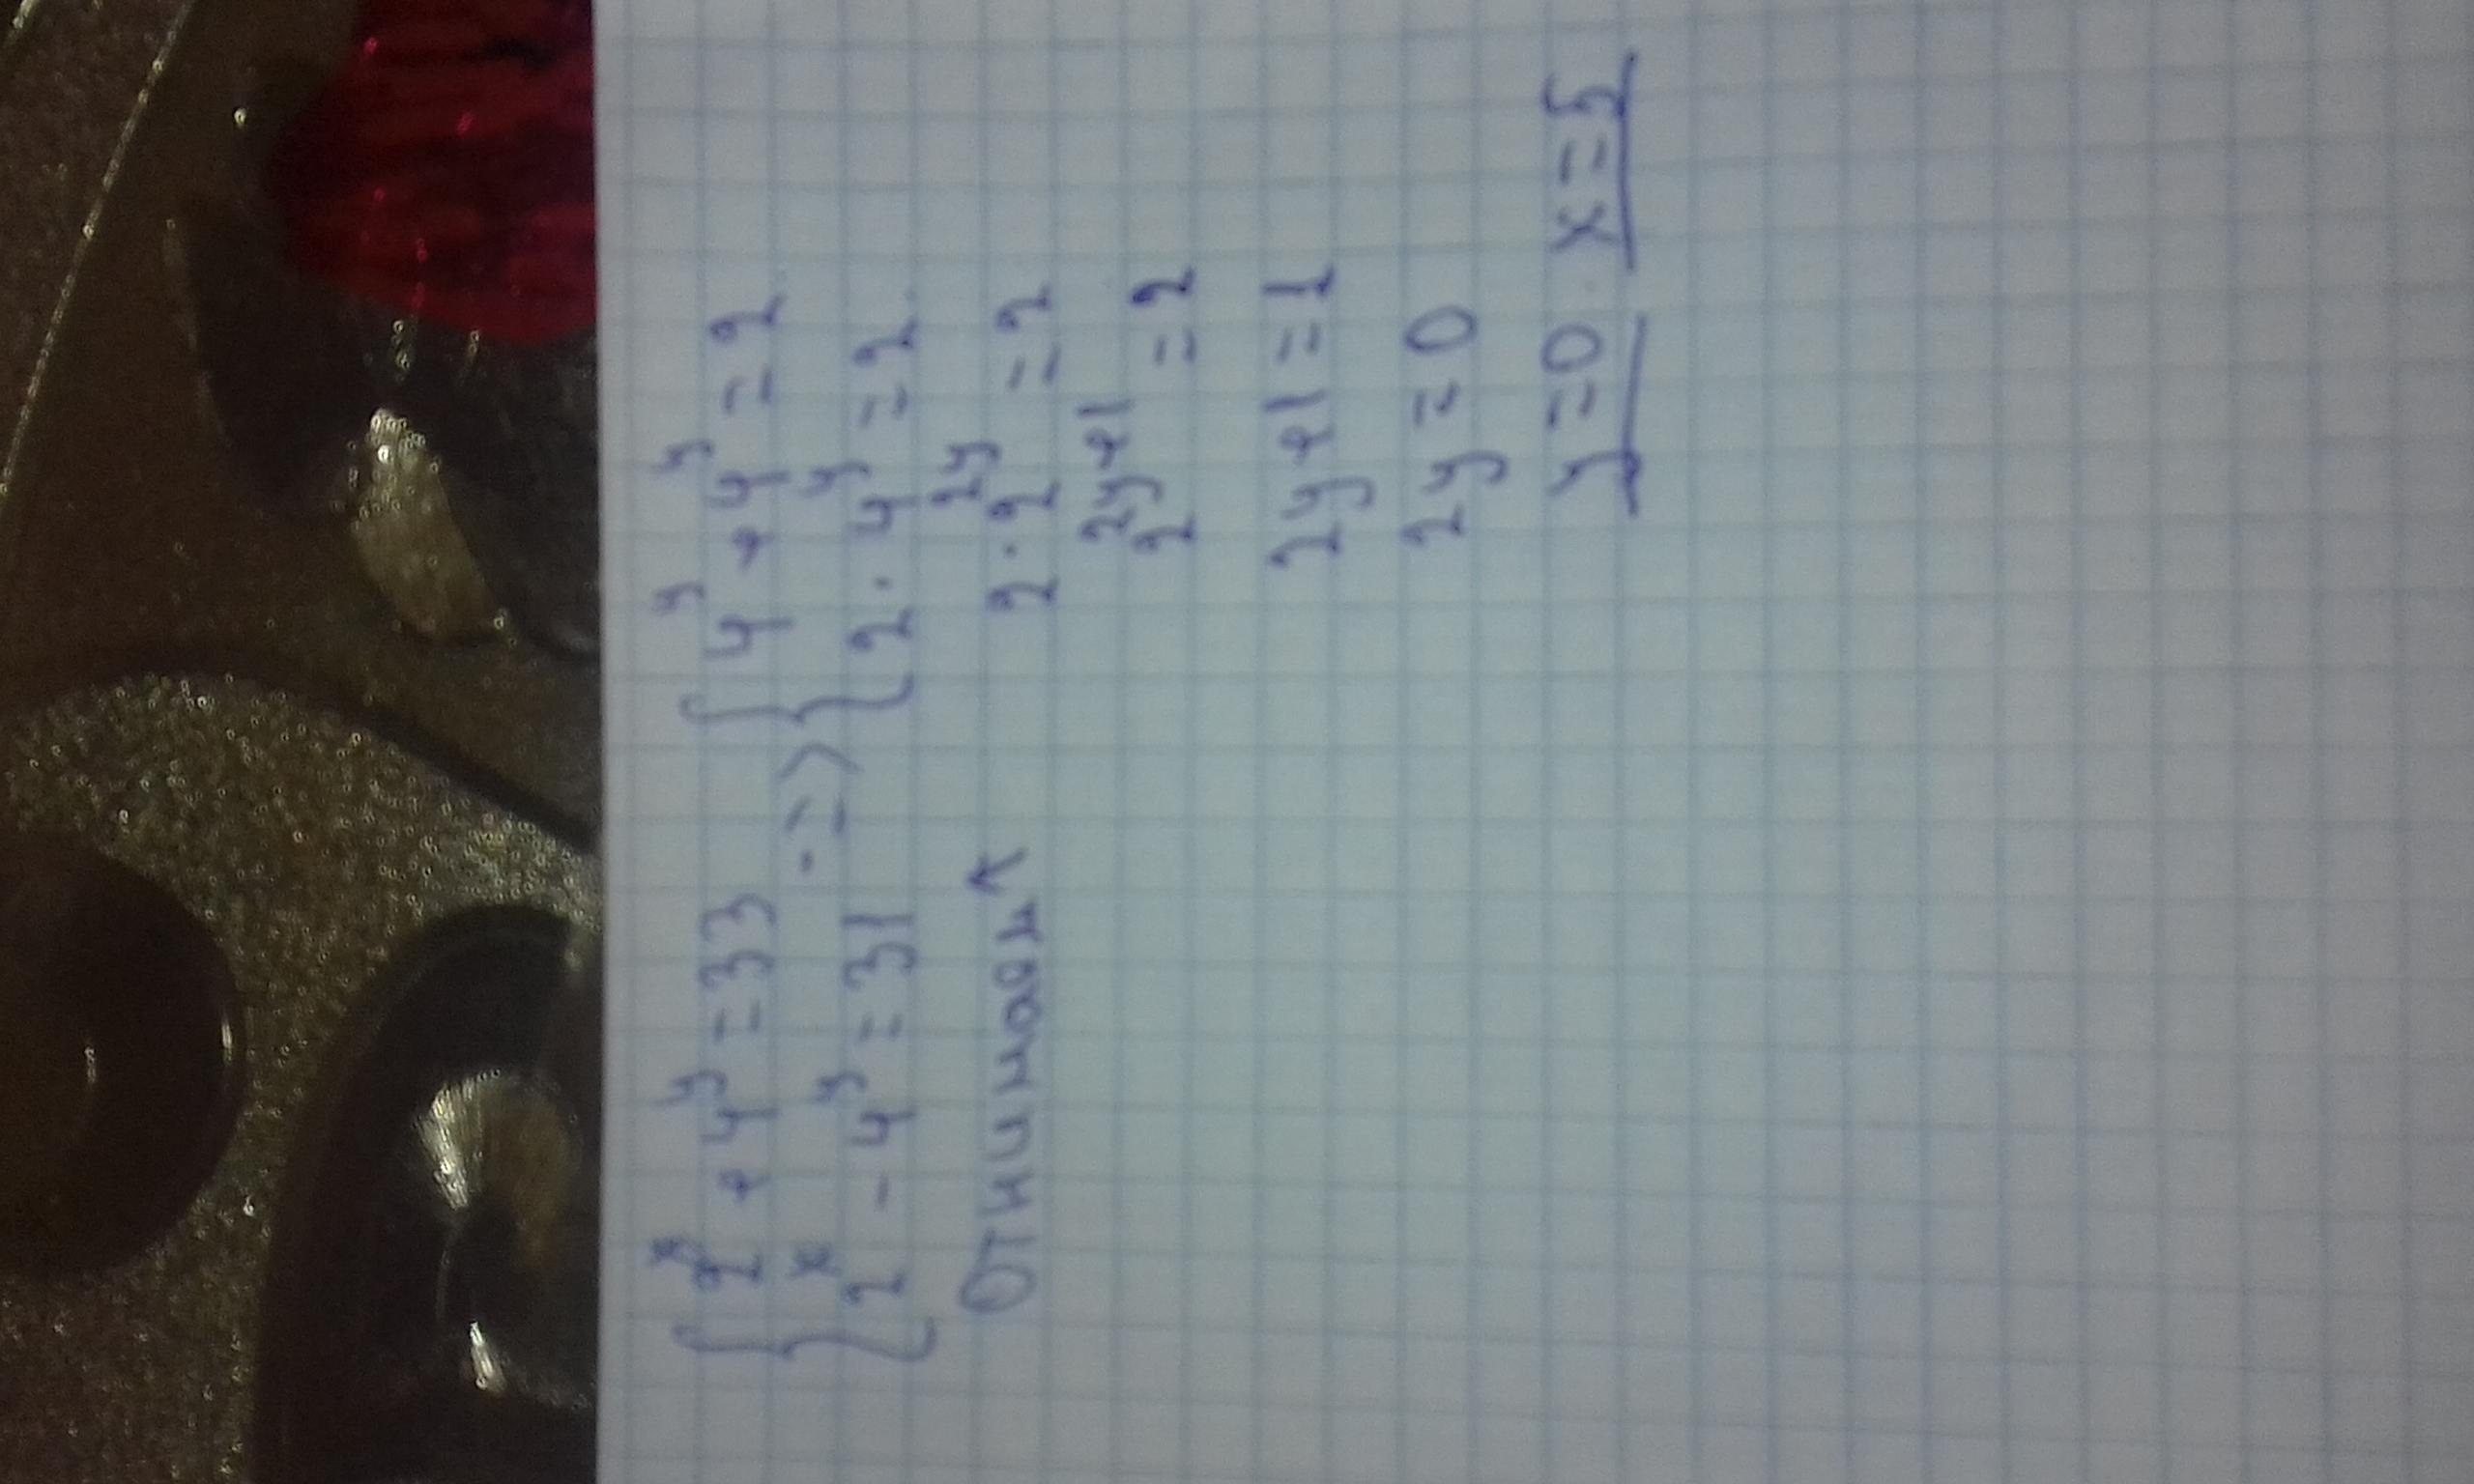 {2^x + 4^y = 33 => {4^y + 4^y = 2
{2^x - 4^y = 31 {2 · 4^y = 2
Отнимаем ↑ 2 · 2^2y = 2
2^2y+1 = 2
2y+1 = 1
2y = 0
y = 0 x = 5